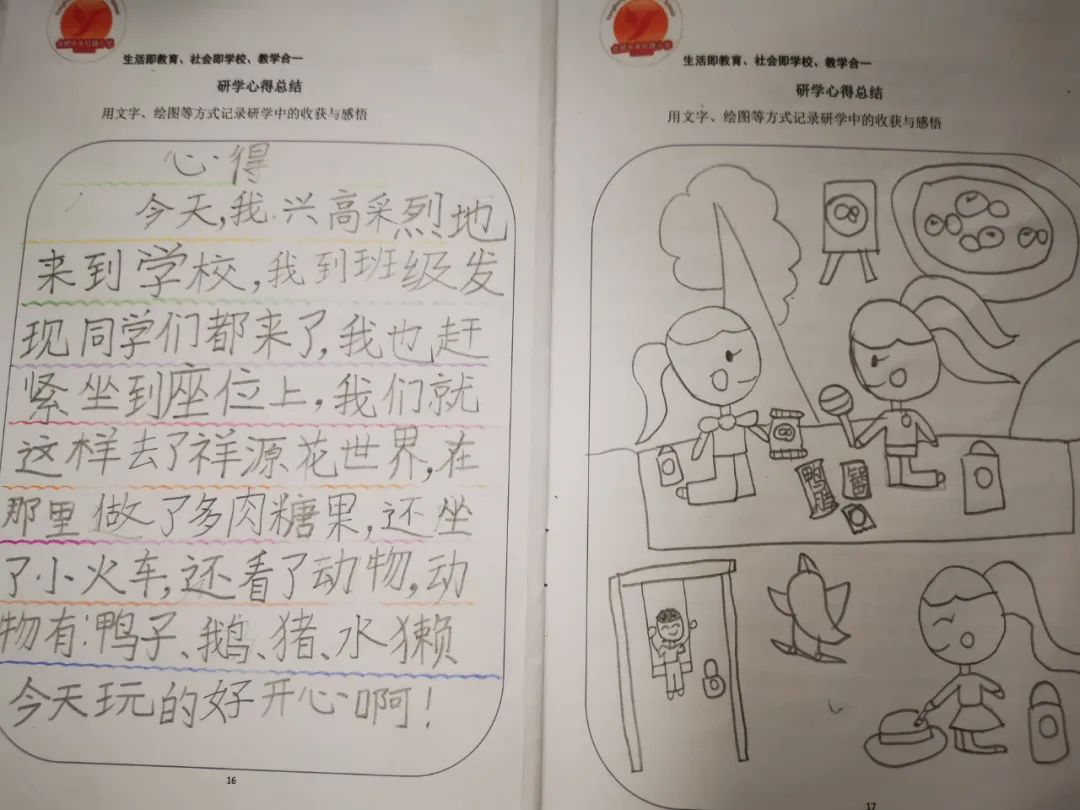 生活即教育、社会即学校、教学合一
研学心得总结
用文字、绘图等方式记录研学中的收获与感悟
心得
今天,我兴高采烈地
来到学校,我到班级发
现同学们都来了,我也赶
紧坐到座位上,我们就
这样去了祥源花世界,在
那里做了多肉糖果,还坐
了小火车,还看了动物,动
物有:鸭子、鹅、猪、水獭
今天玩的好开心啊!
16
生活即教育、社会即学校、教学合一
研学心得总结
用文字、绘图等方式记录研学中的收获与感悟
17